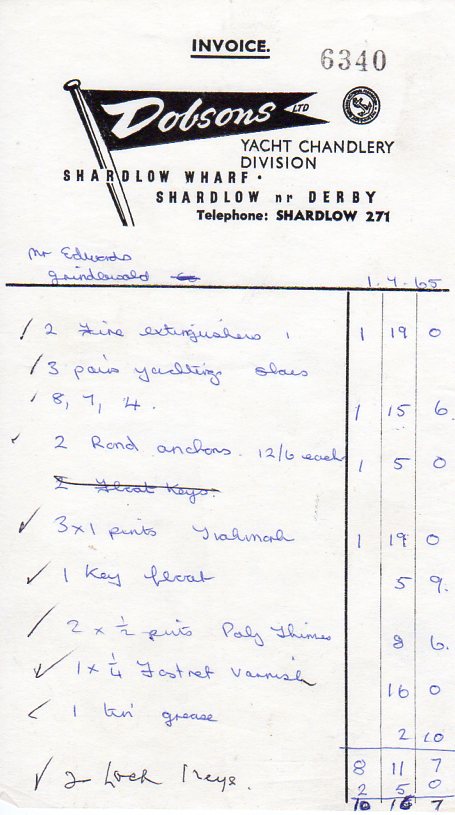 INVOICE.
6340
Dobsons LTD
YACHT CHANDLERY
DIVISION
SHARDLOW WHARF.
SHARDLOW nr DERBY
Telephone: SHARDLOW 271
Mr Edwards
Grindlewald
1.7.65
2 Fire extinguishers 1 19 0
3 pairs yachting shoes
8, 7, 4. 1 15 6.
2 Rond anchors. 12/6 each 1 5 0
2 Float Keys.
3 x 1 pints 1 19 0
1 Key float 5 9.
2 x ½ pints Poly Thinnes 8 6.
1 x ¼ varnish 16 0
1 tin grease 2 10
8 11 7
2 Lock Keys. 2 5 0
10 16 7